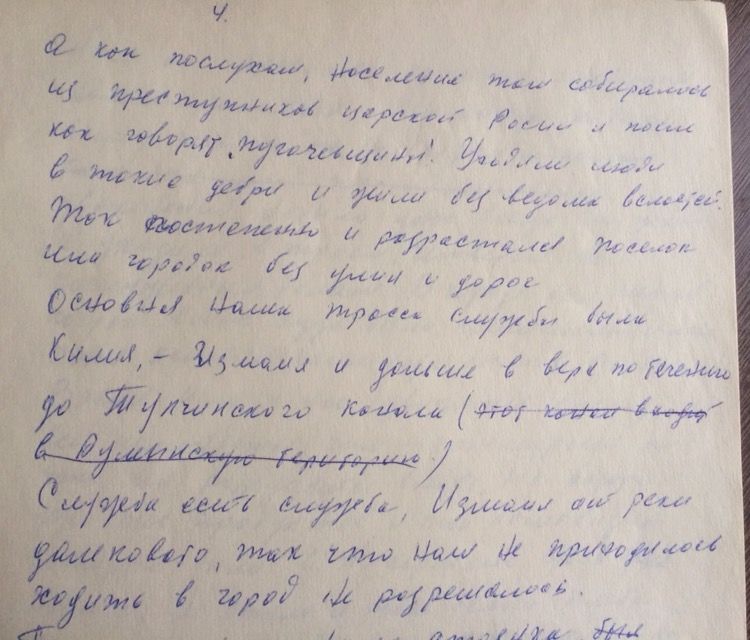 4.
А как послухам, Население там собиралось
из преступников царской Росии и после
как говорят „пугачевщины“. Уходили люди
в такие дебри и жили без ведома властей.
Так постепенно и разрастался поселок
или городок без улиц и дорог
Основная наша трасса службы была
Килия, – Измаил и дальше в верх по течению
до Тулчинского канала (этот канал входит
в Румынскую територию)
Служба есть служба, Измаил от реки
далековато, так что нам не приходилось
ходить в город не разрешалось.
была